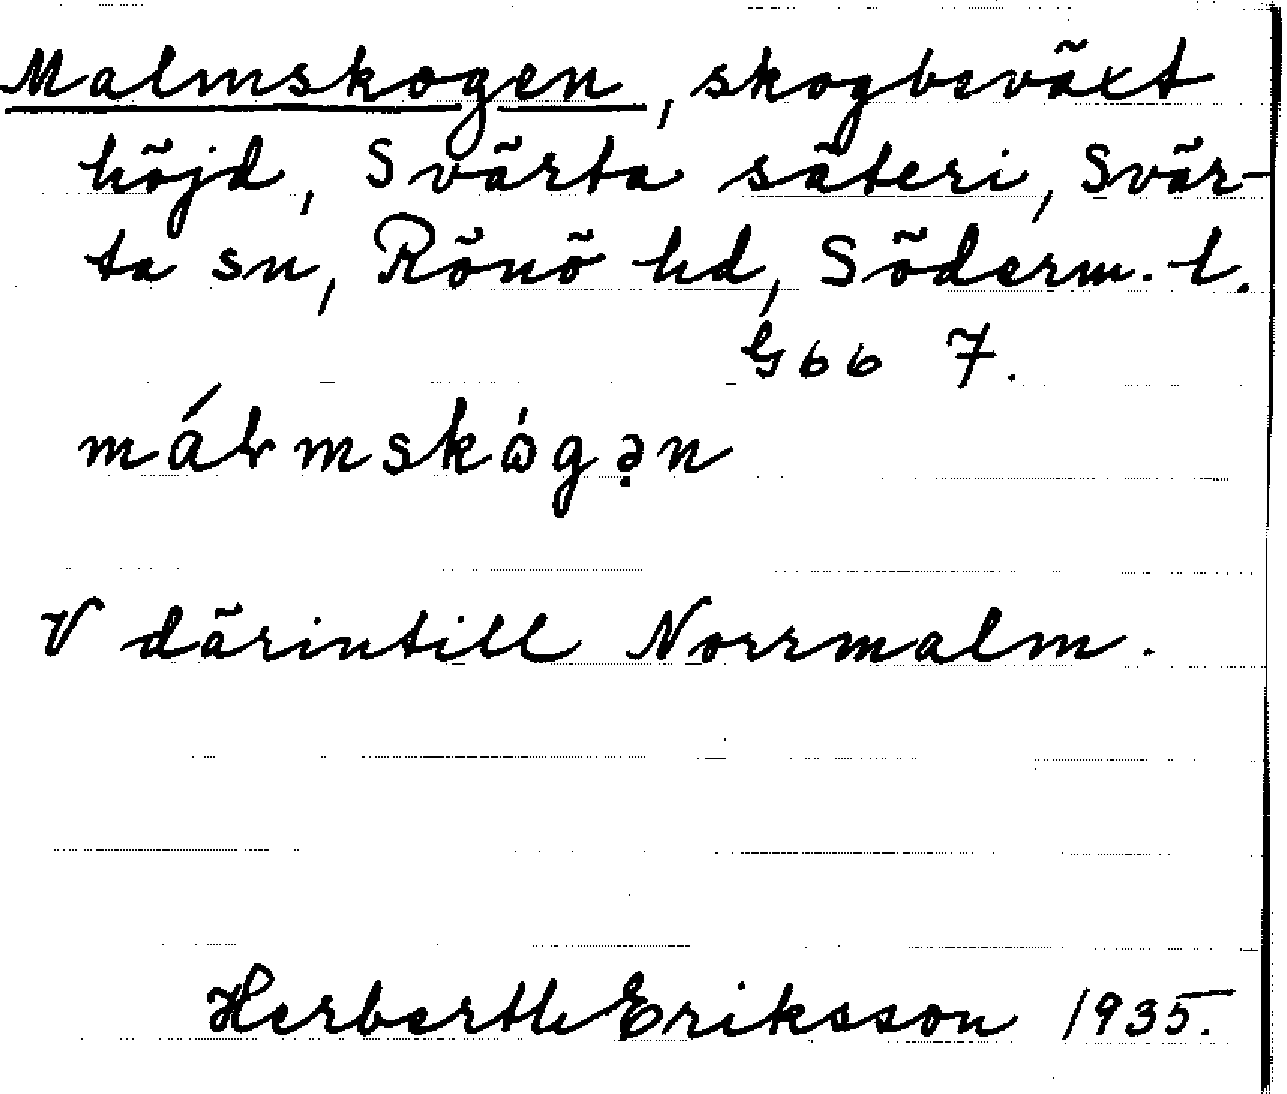 Malmskogen, skogbeväxt
höjd, Svärta säteri, Svär-
ta sn, Rönö hd, Söderm. l.
Gbb 7.
málmskògən
V därintill Norrmalm.
Herberth Eriksson 1935.